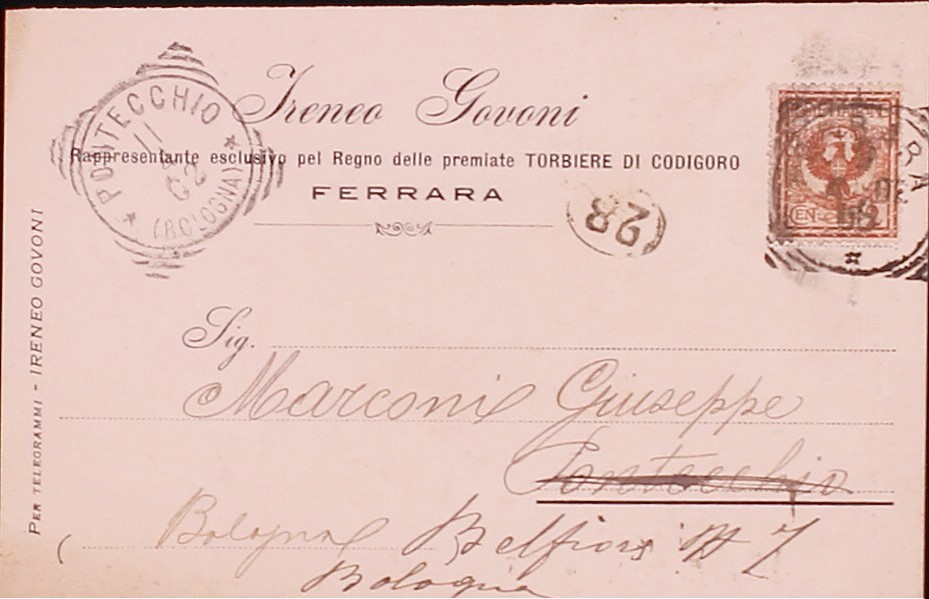 Ireneo Govoni
Rappresentante esclusivo pel Regno delle premiate TORBIERE DI CODIGORO
FERRARA
PONTECCHIO
11
02
(BOLOGNA)
28
RA
PER TELEGRAMMI - IRENEO GOVONI
Sig.
Marconi Giuseppe
Pontecchio
Bologna Belfiore N 7
Bologna